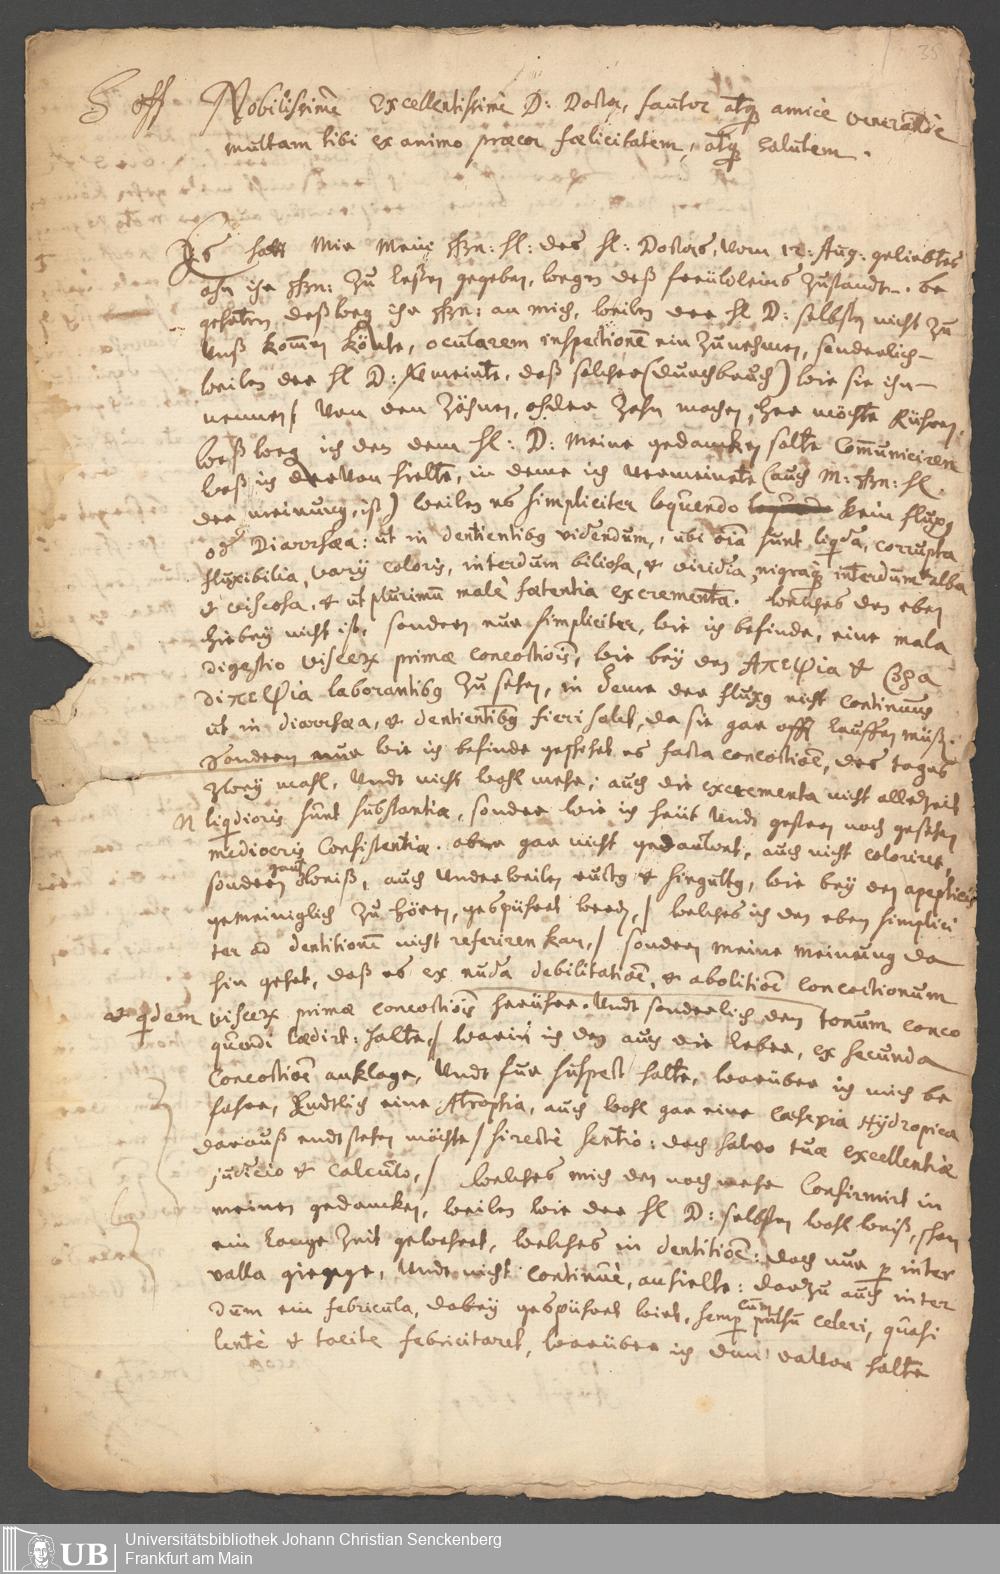 35
S off Nobilissime Excellentissime D: Doctor, fautor atq amice venerande
multam tibi ex animo præcor fœlicitatem, atq salutem.
Es hatt Mir Mein hl: des hl: Doctors, vom 12: Aug: geliebtes
ahn ihr zu leßen gegeben, wegen deß freüwleins Zustandt. be
gehrten deßweg ihr an mich, weilen der hl D: selbsten nicht zu
Unß kommen könte, ocularem inspectione ein Zunehmen, sonderlich
weilen der hl D: Vermeinte, daß solches (durchbruch) wie sie ihn
nennen / Von den Zähnen, oder Zahn machen, her möchte Rühren,
weßweg ich den dem hl: D: Meine gedancken solte Communiciren
waß ich darvon hielte, in deme ich vermeinete (auch M: hl.
der meinung ist) weilen es simpliciter loquendo kein fluxq
od Diarrhæa: ut in dentientibq videndum, ubi oia sunt liqida, corrupta
fluxibilia, varij coloris, interdum biliosa, & viridia, nigraq interdum & alba
& viscosa, & ut plurimu male fœtentia excrementa. welches den eben
hierbey nicht ist, sondern nur simpliciter, wie ich befinde, eine mala
digestio viscer primæ concoctiois, wie bey den Aπεψia & Bra
diπεψia laborantibq zu sehen, in deme der fluxq nicht continuus
ut in diarrhæa, & dentientibq fieri solet, da sie gar offt lauffen müß.
Sondern nur wie ich befinde geschehet es facta concoctioe, des tages
zwey mahl, Undt nicht wohl mehr; auch die excrementa nicht alledzeit
liqidioris sunt substantiæ, sonder wie ich heüt Undt gestern noch gesehen
mediocris Consistentiæ. aber gar nicht gedauwet, auch nicht coloriret,
sondern gantz weiß, auch Underweilen ructq & singultq, wie bey den apepticis
gemeiniglich zu hören, gespühret werd, / welches ich den eben simplici
ter ad dentitione nicht referiren kan, / sondern meine meinung da
hin gehet, daß es ex nuda debilitatioe, & abolitioe concoctionum
& qidem viscer primæ concoctiois herühre. Undt sonderlich den tonum conco
quendi lædirt: halte, / warin ich den auch die leber, ex secunda
Concoctioe anklage, Undt fur suspect halte, warüber ich mich be
fahre, Endtlich eine Atrophia, auch wohl gar eine Cachexia Hydropica
darauß endtstehen möchte / si recte sentio: doch salvo tuæ excellentiæ
judicio & calculo, / welches mich den noch mehr Confirmirt in
meinen gedancken, weilen wie der hl D: selbsten wohl weiß, schon
ein lange Zeit gewehret, welches in dentitioe: doch nur p inter
valla gienge, Undt nicht continue, anhielte: darzu auch inter
dum ein febricula, dabey gespühret wirt, semp cum pulsu celeri, quasi
lente & tacite febricitaret, warüber ich davor halte
Universitätsbibliothek Johann Christian Senckenberg
Frankfurt am Main
UB